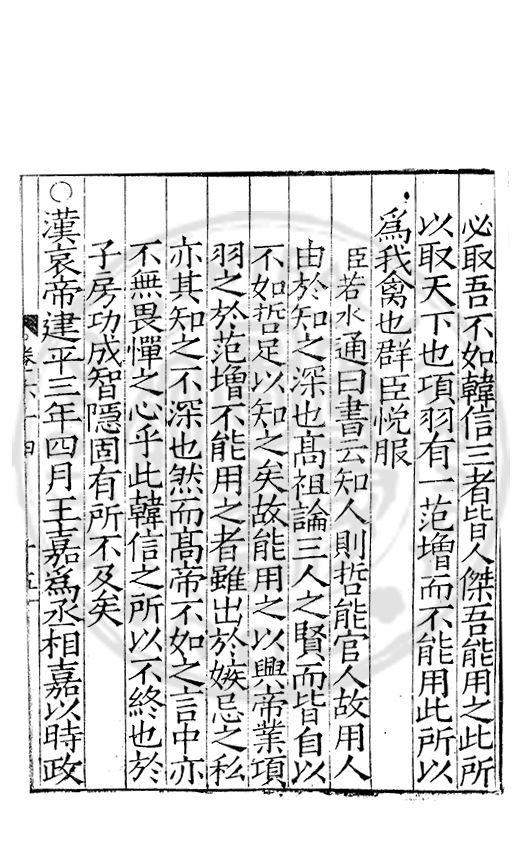 必取吾不如韓信三者皆人傑吾能用之此所
以取天下也項羽有一范增而不能用此所以
爲我禽也群臣悅服
臣若水通曰書云知人則哲能官人故用人
由於知之深也高祖論三人之賢而皆自以
不如哲足以知之矣故能用之以興帝業項
羽之於范增不能用之者雖出於嫉忌之私
亦其知之不深也然而高帝不如之言中亦
不無畏憚之心乎此韓信之所以不終也於
子房功成智隱固有所不及矣
○漢哀帝建平三年四月王嘉爲丞相嘉以時政
卷六十四
十五